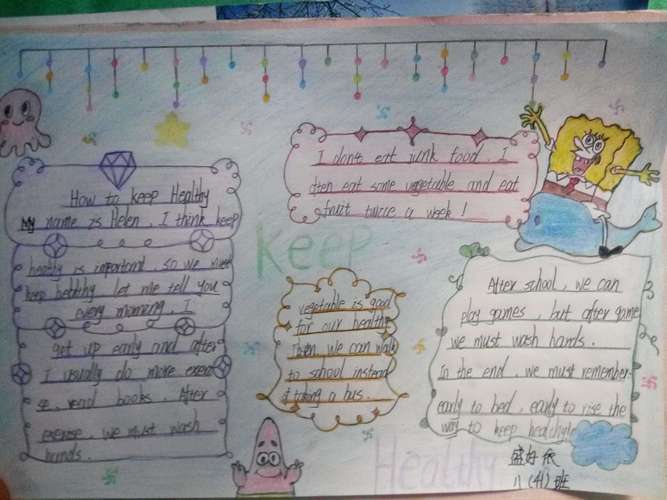 How to keep Healthy
My name is Helen. I think keep
healthy is important, so we must
keep healthy. let me tell you
every morning, I
get up early and after
I usually do more exerci
se. read books. After
exercise, we must wash
hands.
I don't eat junk food. I
often eat some vegetable and eat
fruit twice a week!
Keep
vegetable is good
for our healthy
Then, we can walk
to school instead
of taking a bus.
After school, we can
play games, but after game
we must wash hands.
In the end, we must remember
early to bed, early to rise the
way to keep healthy
Healthy
八(4)班